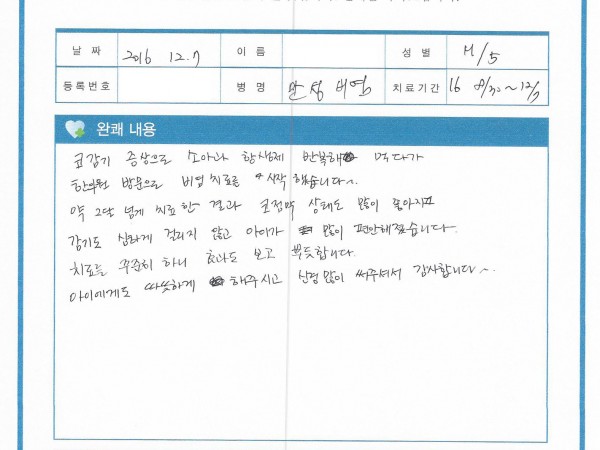 날 짜 2016 12.7 이 름 성 별 M/5
등록번호 병 명 만성 비염 치료기간 16 8/30~12/7
완쾌 내용
코감기 증상으로 소아과 항생제 반복해 먹다가
한의원 방문으로 비염치료를 시작했습니다~.
약 3달 넘게 치료한 결과 코점막 상태도 많이 좋아지고
감기도 심하게 걸리지 않고 아이가 많이 편안해졌습니다.
치료를 꾸준히 하니 효과도 보고 뿌듯합니다.
아이에게도 따뜻하게 해주시고 신경많이 써주셔서 감사합니다~.